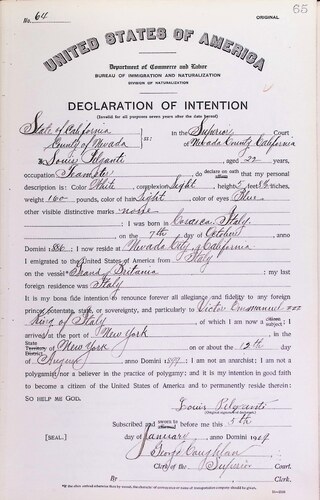 65
No. 64
ORIGINAL
UNITED STATES OF AMERICA
Department of Commerce and Labor
BUREAU OF IMMIGRATION AND NATURALIZATION
DIVISION OF NATURALIZATION
DECLARATION OF INTENTION
(Invalid for all purposes seven years after the date hereof)
State of California
County of Nevada ss: In the Superior Court
of Nevada County California
I, Louis Pelganti, aged 22 years,
occupation Teamster, do declare on oath that my personal
description is: Color White, complexion Light, height 5 feet inches,
weight 160 pounds, color of hair Light, color of eyes Blue
other visible distinctive marks none
I was born in Italy
on the 7th day of October, anno
Domini 1886; I now reside at Nevada City, California
I emigrated to the United States of America from Italy
on the vessel Britania; my last
foreign residence was Italy
It is my bona fide intention to renounce forever all allegiance and fidelity to any foreign
prince, potentate, state, or sovereignty, and particularly to Victor Emmanuel III
King of Italy, of which I am now a subject; I
arrived at the port of New York, in the
State of New York on or about the 12th day
of August, anno Domini 1897; I am not an anarchist; I am not a
polygamist nor a believer in the practice of polygamy; and it is my intention in good
faith to become a citizen of the United States of America and to permanently reside therein:
SO HELP ME GOD.
Louis Pelganti
Subscribed and sworn to before me this 5th
[SEAL.] day of January, anno Domini 1909
George Coughlan
Clerk of the Superior Court.
By, Clerk.